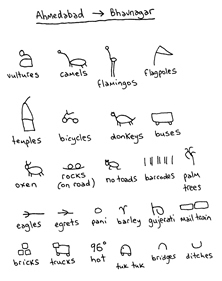 Ahmedabad → Bhavnagar
vultures camels flamingos flagpoles
temples bicycles donkeys buses
oxen rocks (on road) no toads barcodes palm trees
eagles egrets pani barley gujerati mail train
bricks trucks 96° hot tuk tuk bridges ditches